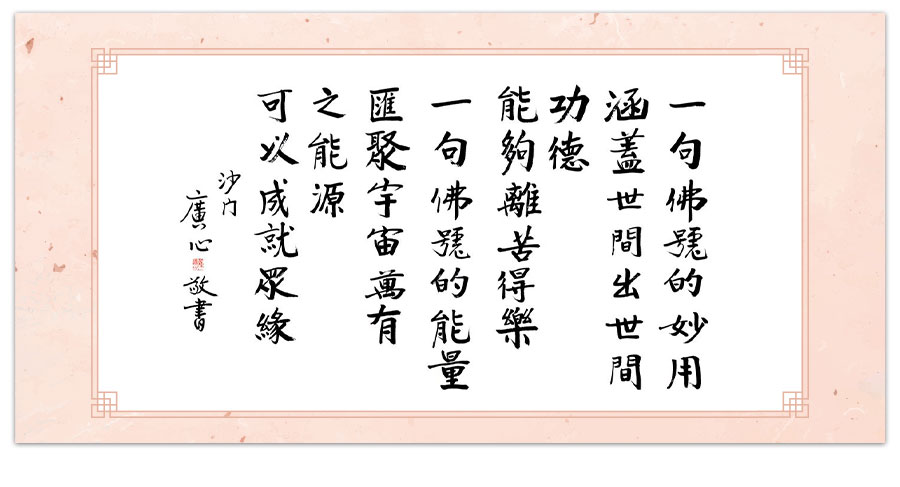 一句佛號的妙用
涵蓋世間出世間
功德
能夠離苦得樂
一句佛號的能量
匯聚宇宙萬有
之能源
可以成就眾緣
沙门
廣心
敬書